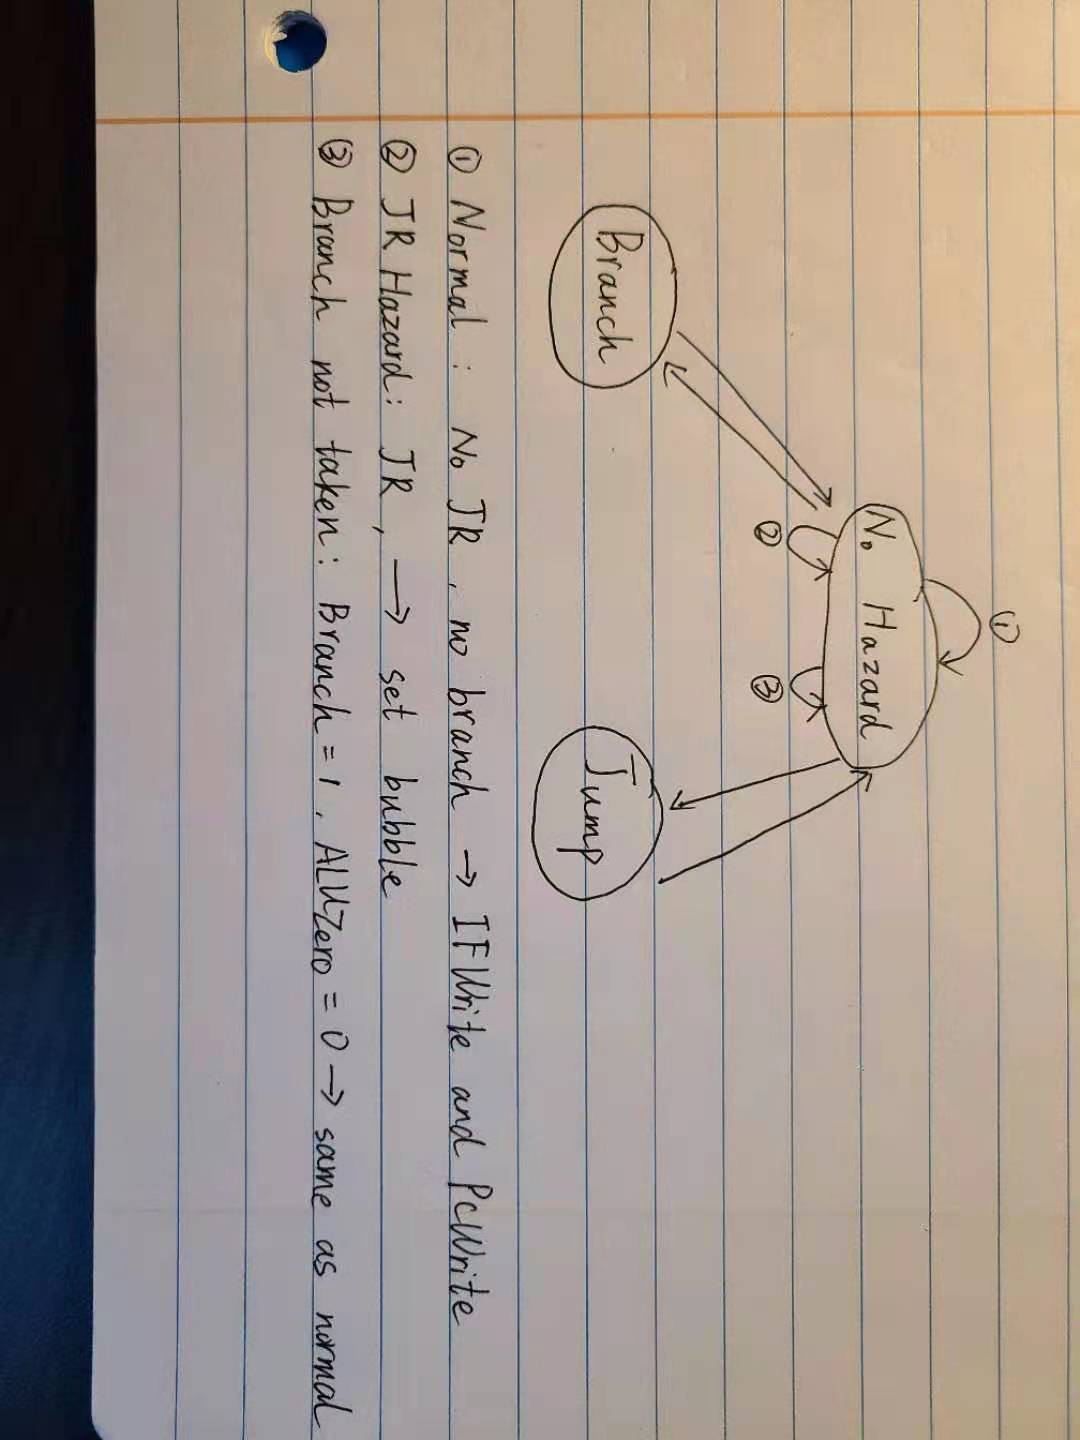 ①
No Hazard
② ③
Branch
Jump
① Normal : No JR , no branch → IFWrite and PcWrite
② JR Hazard: JR , → set bubble
③ Branch not taken: Branch = 1 , ALUZero = 0 → same as normal